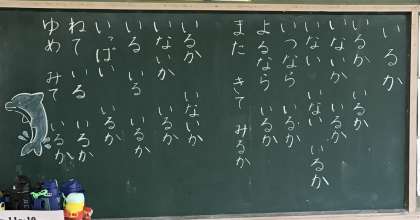 いるか
いるか いるか
いないか いるか
いない いない いるか
いつなら いるか
よるなら いるか
また きて みるか
いるか いないか
いないか いるか
いる いる いるか
いっぱい いるか
ねて いる いるか
ゆめ みて いるか